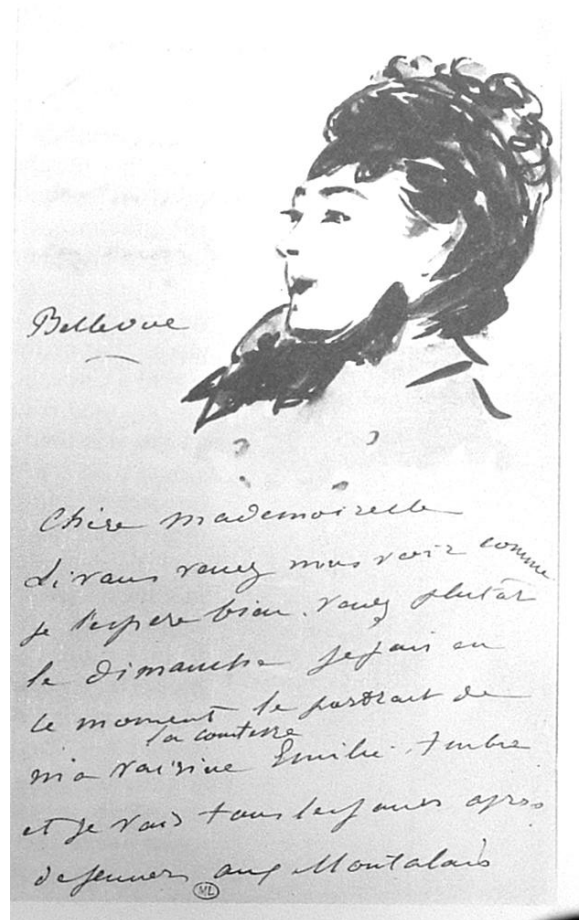 Bellevue
Chère mademoiselle
si vous venez nous voir comme
je l'espere bien. venez plutôt
le dimanche je fais en
ce moment le portrait de
la comtesse
ma voisine Emilie Ambre
et je vais tous les jours apres
dejeuner aux Montalais
ML